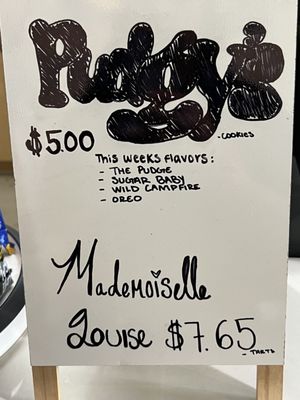 Pudgy's
- COOKIES
$5.00
This weeks flavors:
- THE PUDGE
- SUGAR BABY
- WILD CAMPFIRE
- OREO
Mademoiselle
Louise $7.65
- TARTS